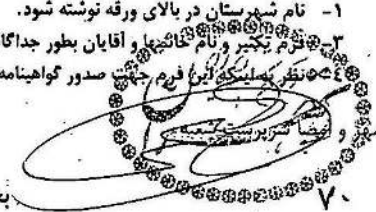 ۱- نام شهرستان در بالای ورقه نوشته شود.
۳- فرم یکسر و نام خانمها و آقایان بطور جداگا
۴- نظر باینکه این فرم جهت صدور گواهینامه
مهر و امضا سرپرست شعبه
۷۰